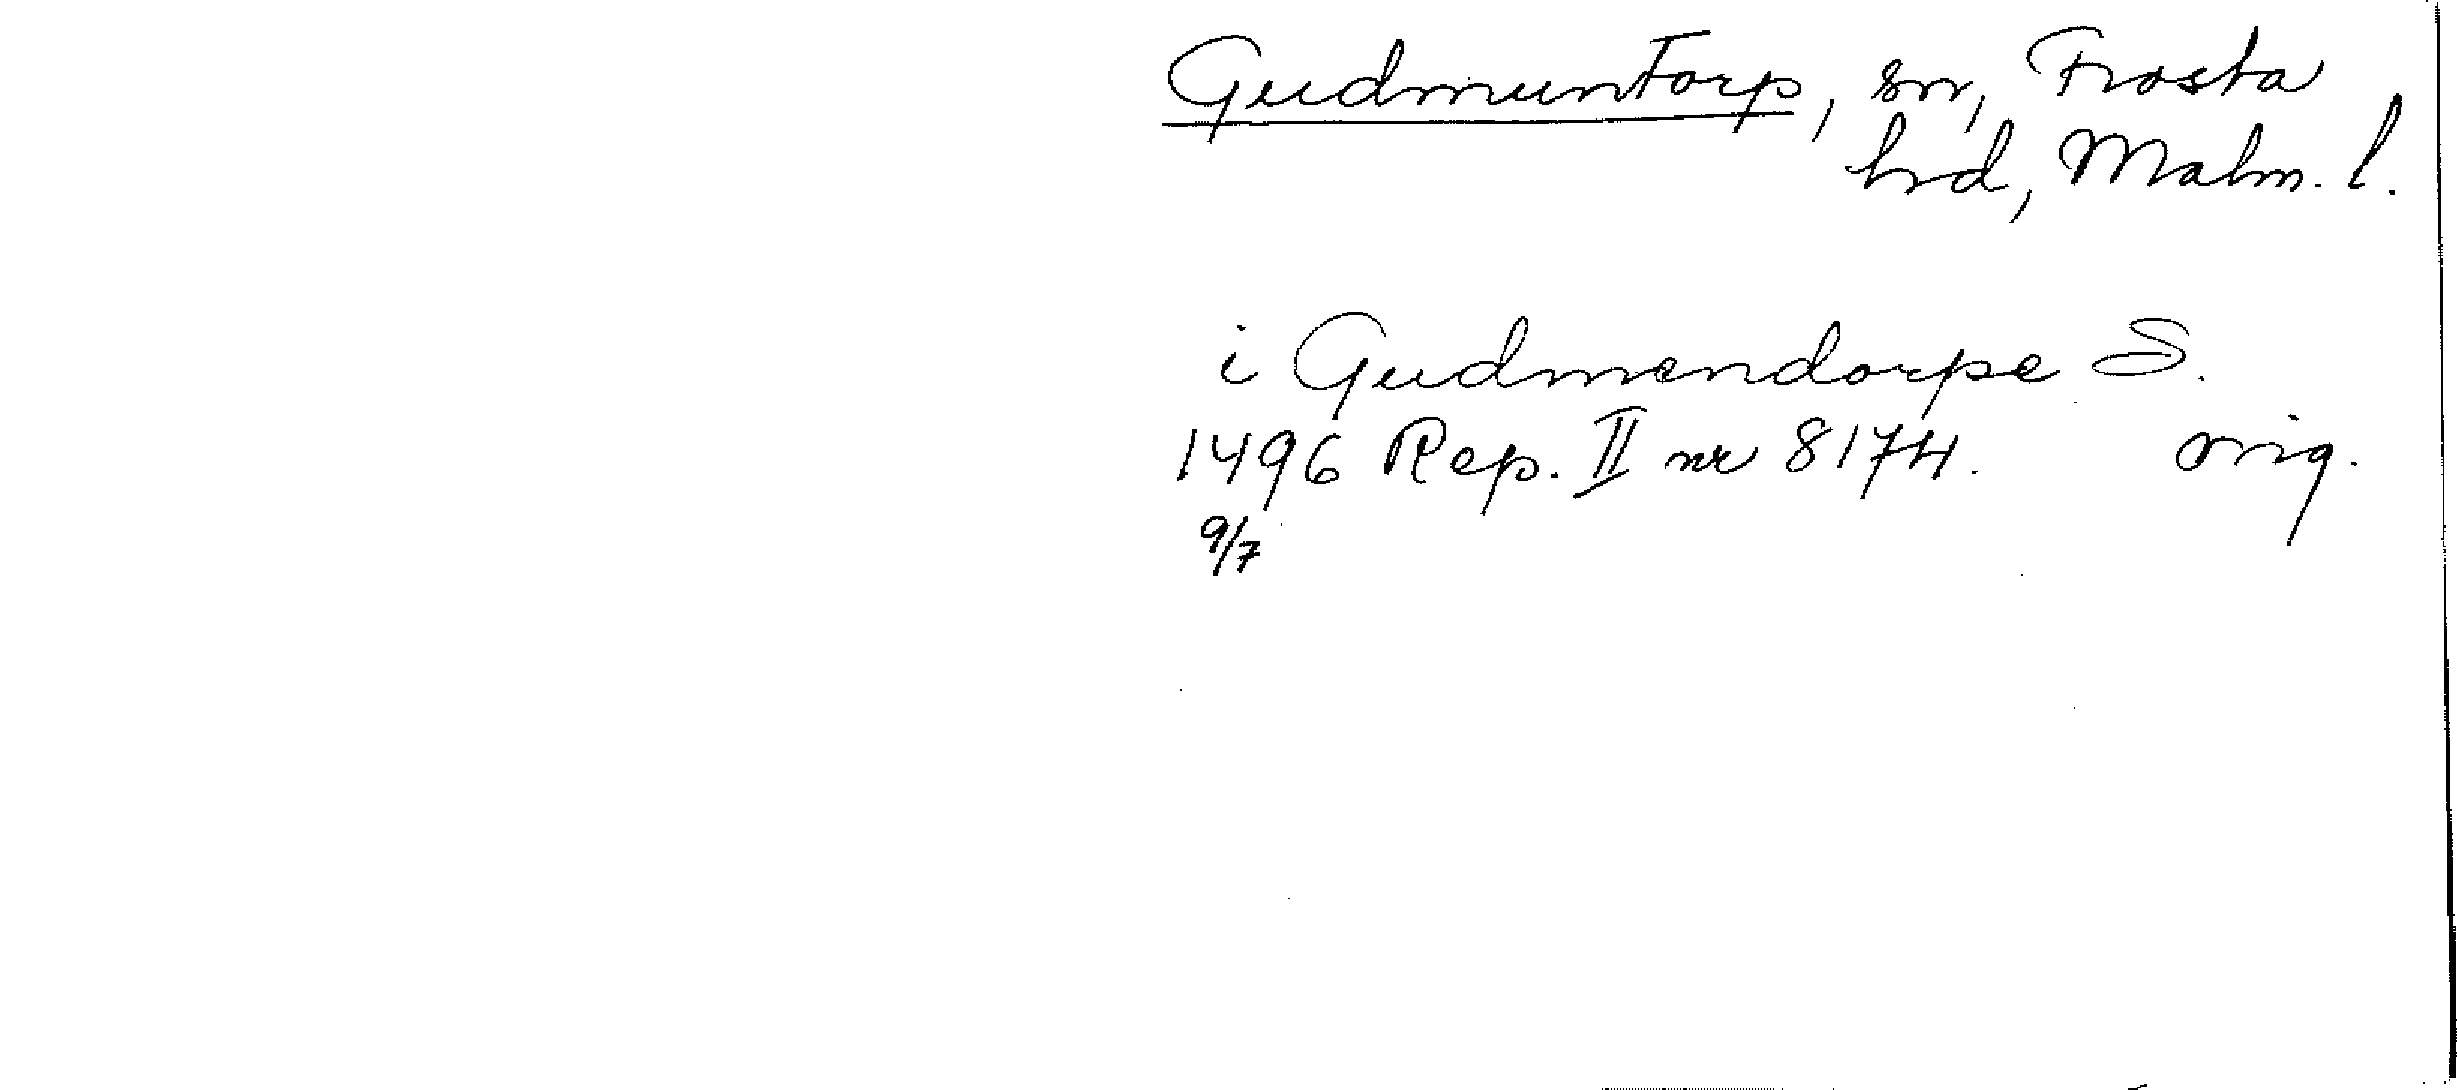 Gudmuntorp, sn, Frosta
hd, Malm. l.
i Gudmendorpe S.
1496 Rep. II nr 8174. orig.
9/7